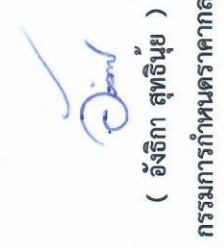 ( อังธิกา สุทธินุ้ย )
กรรมการกำหนดราคากล